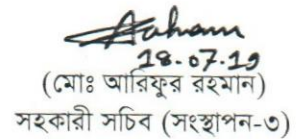 18.07.19
(মোঃ আরিফুর রহমান)
সহকারী সচিব (সংস্থাপন-৩)